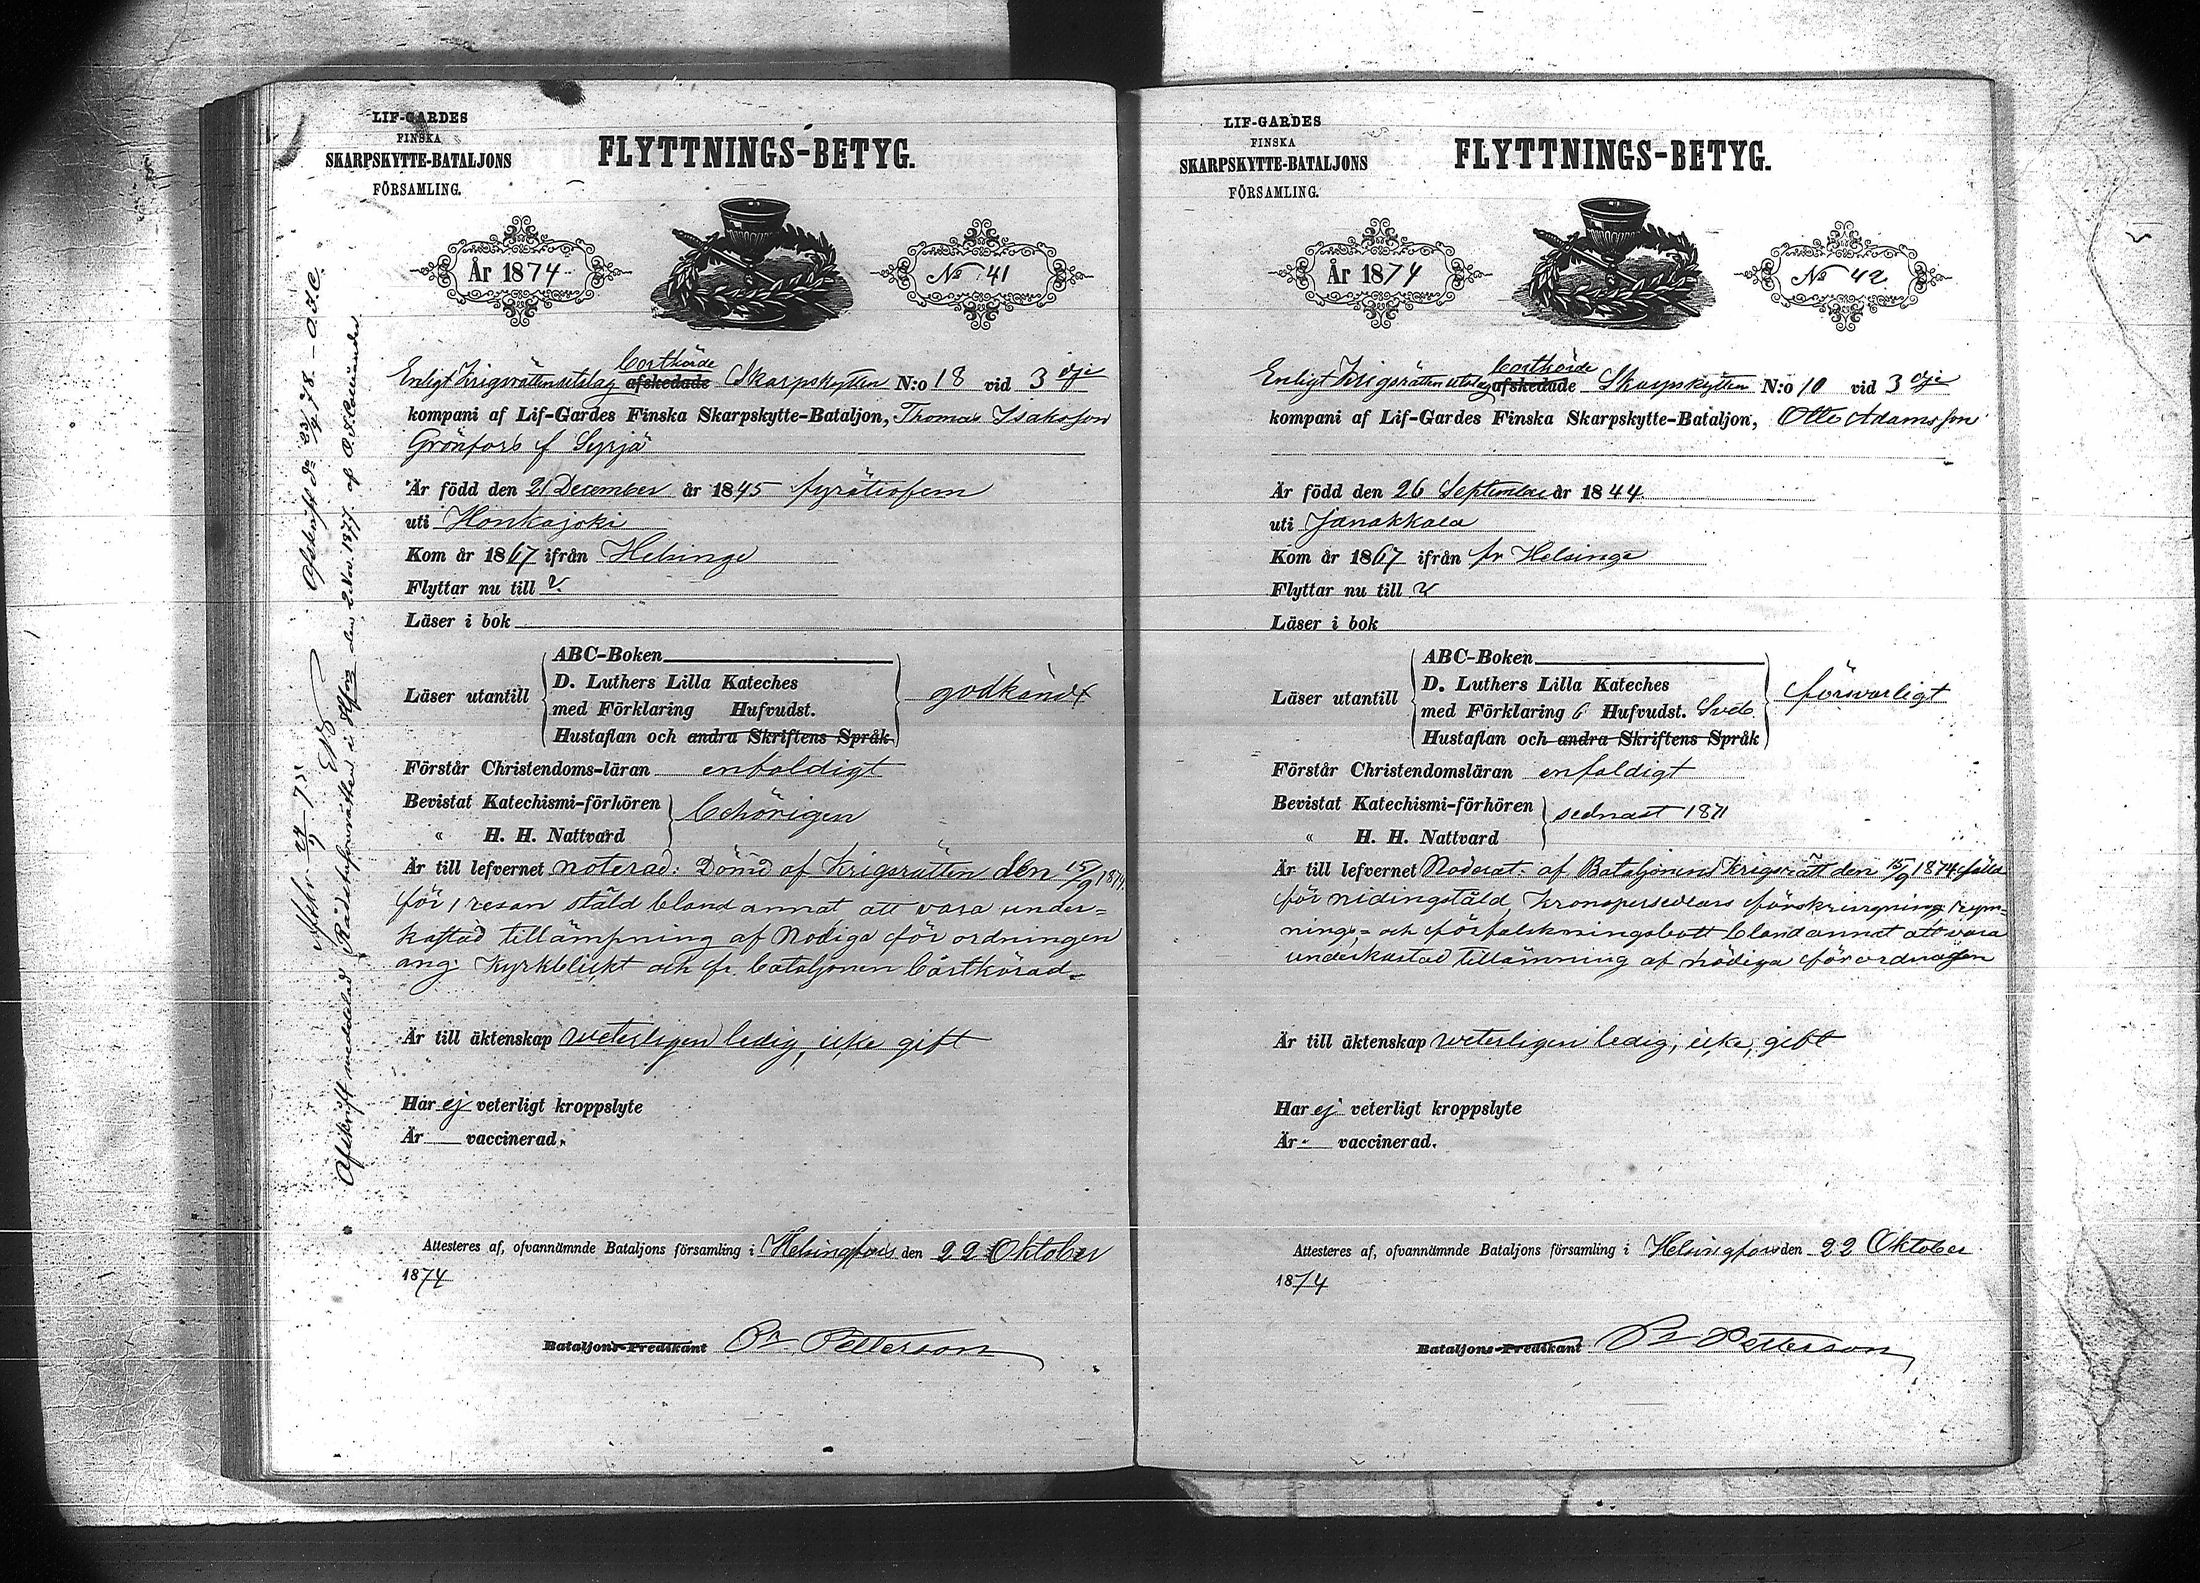 LIF-GARDES
FINSKA
SKARPSKYTTE-BATALJONS
FÖRSAMLING.
FLYTTNINGS-BETYG.
År 1874
No 41
Enligt Krigsrättens utslag bortkörde afskedade Skarpskytten N:o 18 vid 3 dje
kompani af Lif-Gardes Finska Skarpskytte-Bataljon, Thomas Isaksson
Grönfors f Syrjä
Är född den 21 December år 1845 fyratiofem
uti Honkajoki
Kom år 1867 ifrån Helsinge
Flyttar nu till ?
Läser i bok
Läser utantill
ABC-Boken
D. Luthers Lilla Kateches
med Förklaring Hufvudst.
Hustaflan och andra Skriftens Språk
godkändt
Förstår Christendoms-läran enfaldigt
Bevistat Katechismi-förhören
" H. H. Nattvard
behörigen
Är till lefvernet noterad: Dömd af Krigsrätten den 15/9 1874
för 1 resan stöld bland annat att vara under=
kastad tillämpning af Nödiga förordningen
ang. Kyrkplikt och fr. bataljonen bortkörad
Är till äktenskap veterligen ledig, icke gift
Har ej veterligt kroppslyte
Är vaccinerad.
Attesteres af, ofvannämnde Bataljons församling i Helsingfors den 22 Oktober
1874
Bataljons-Predikant Petterson
Afskrift d= 23/4 78 - O.I.C.
Afskrift meddelad Rådstufvurätten i Hfors den 2 Nov. 1877. af
LIF-GARDES
FINSKA
SKARPSKYTTE-BATALJONS
FÖRSAMLING.
FLYTTNINGS-BETYG.
År 1874
No 42
Enligt Krigsrättens utslag bortkörde afskedade Skarpskytten N:o 10 vid 3 dje
kompani af Lif-Gardes Finska Skarpskytte-Bataljon, Otto Adamsson
Är född den 26 September år 1844
uti Janakkala
Kom år 1867 ifrån fr Helsinge
Flyttar nu till ?
Läser i bok
Läser utantill
ABC-Boken
D. Luthers Lilla Kateches
med Förklaring 6 Hufvudst. Sveb.
Hustaflan och andra Skriftens Språk
försvarligt
Förstår Christendomsläran enfaldigt
Bevistat Katechismi-förhören
" H. H. Nattvard
sednast 1871
Är till lefvernet Noterat: af Bataljonens Krigsrätt den 15/9 1874 fälld
för Kronopersedlars förskringning, rym=
nings= och förfalskningsbott bland annat att vara
underkastad tillämning af nödiga förordningen
Är till äktenskap veterligen ledig, icke, gift
Har ej veterligt kroppslyte
Är - vaccinerad.
Attesteres af, ofvannämnde Bataljons församling i Helsingfors den 22 Oktober
1874
Bataljons-Predikant Petterson